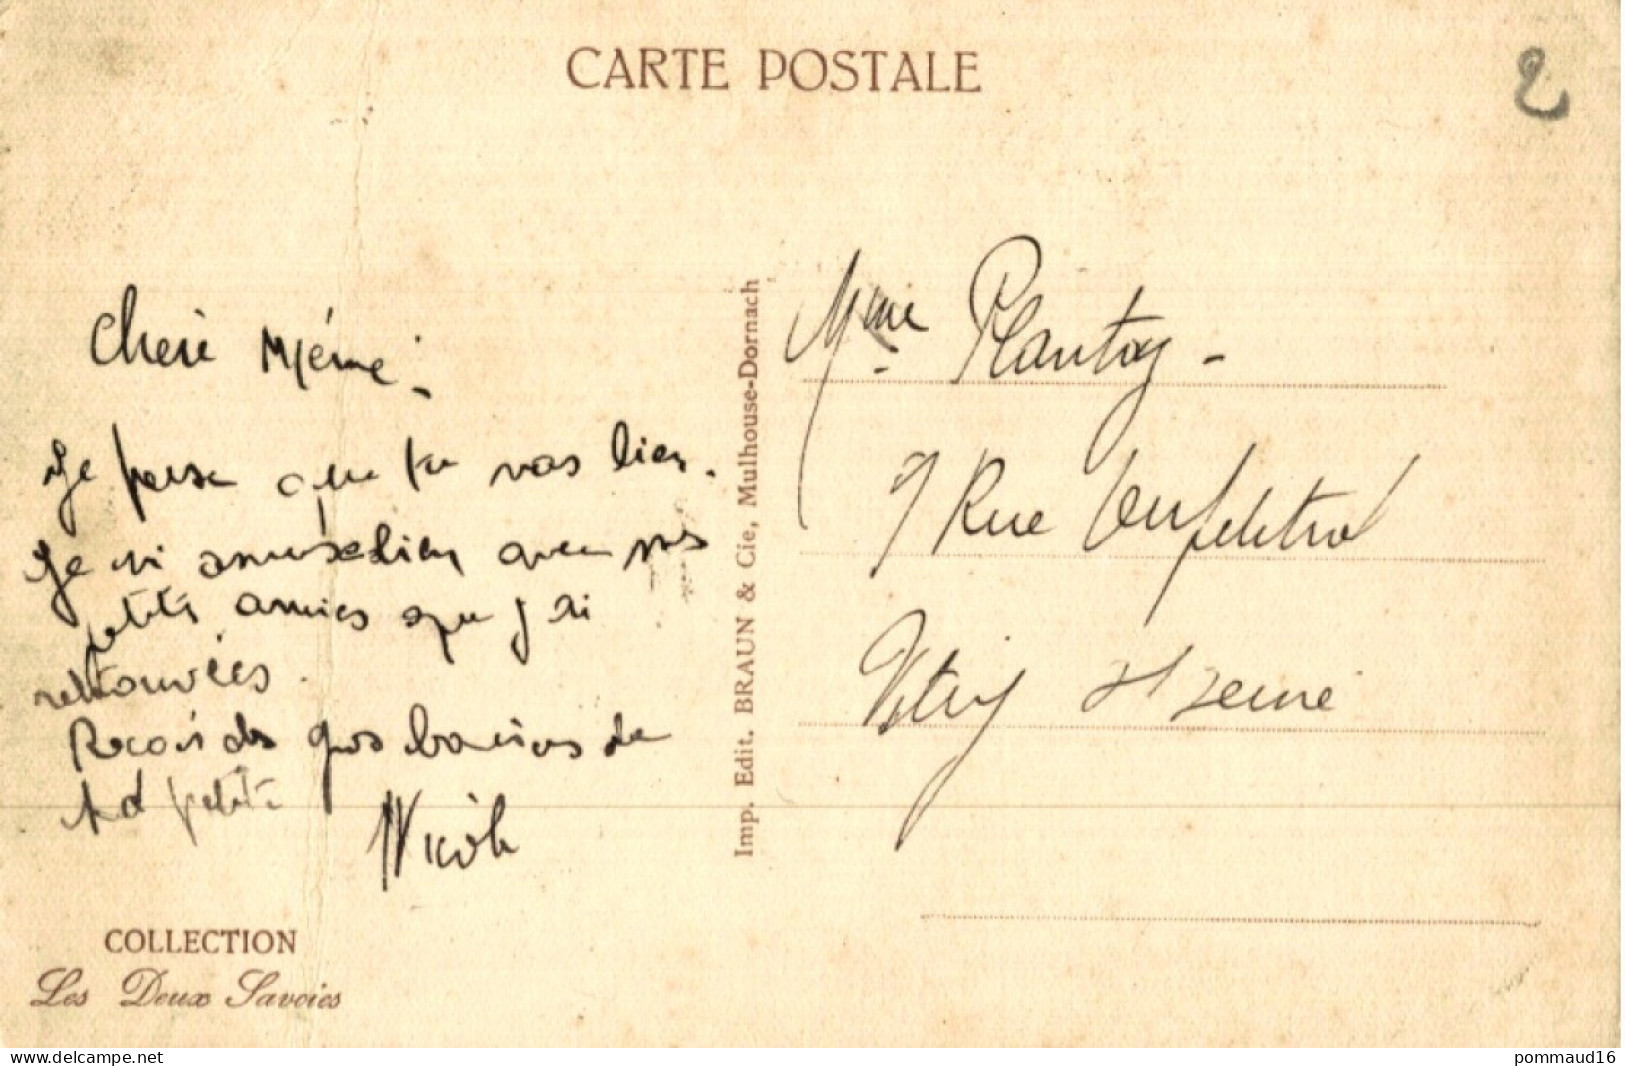 CARTE POSTALE
2
Cheri Mémé.
Je pense que tu vas bien.
Je m'amuse bien avec mes
petits amies que j'ai
retrouvées.
Recois des gros baisers de
ta petite
Nicole
Mme Plantay -
9 Rue
Vitry s/ Seine
Imp. Edit. BRAUN & Cie, Mulhouse-Dornach
COLLECTION
Les Deux Savoies
www.delcampe.net
pommaud16